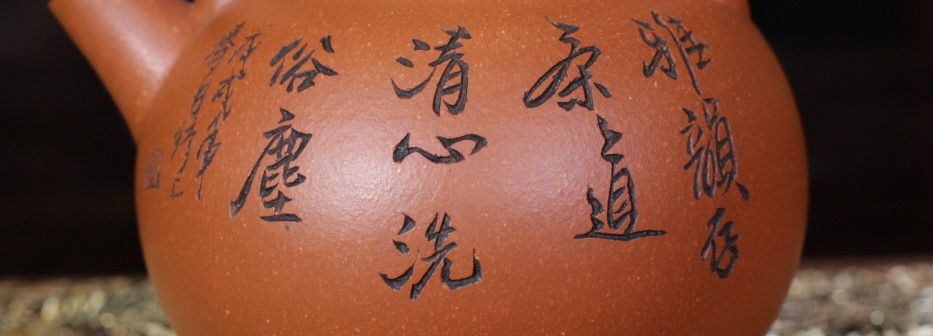 雅韻存
茶之道
清心洗
俗塵